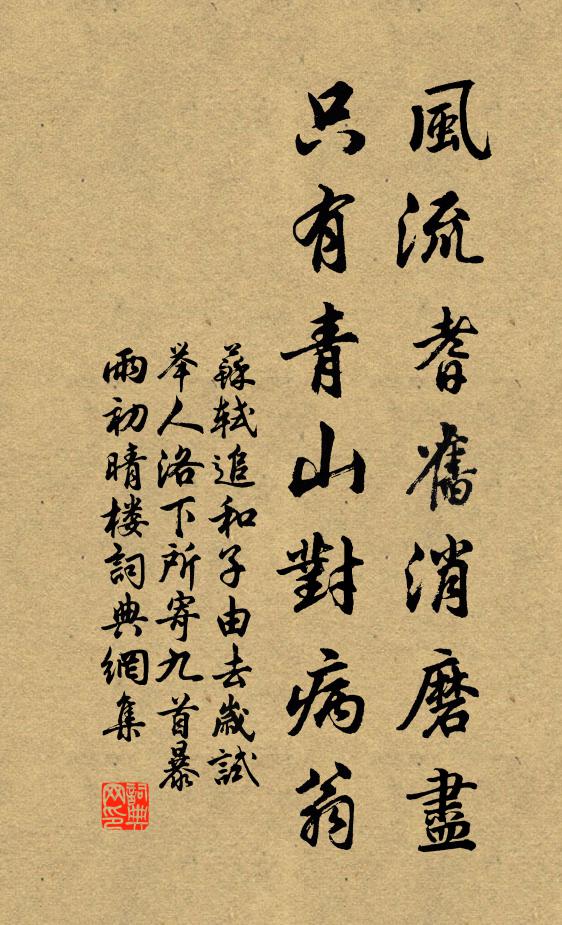 風流耆舊消磨盡
只有青山對病翁
蘇軾追和子由去歲試
举人洛下所寄九首暴
雨初晴楼詞典網集
詞典
网印